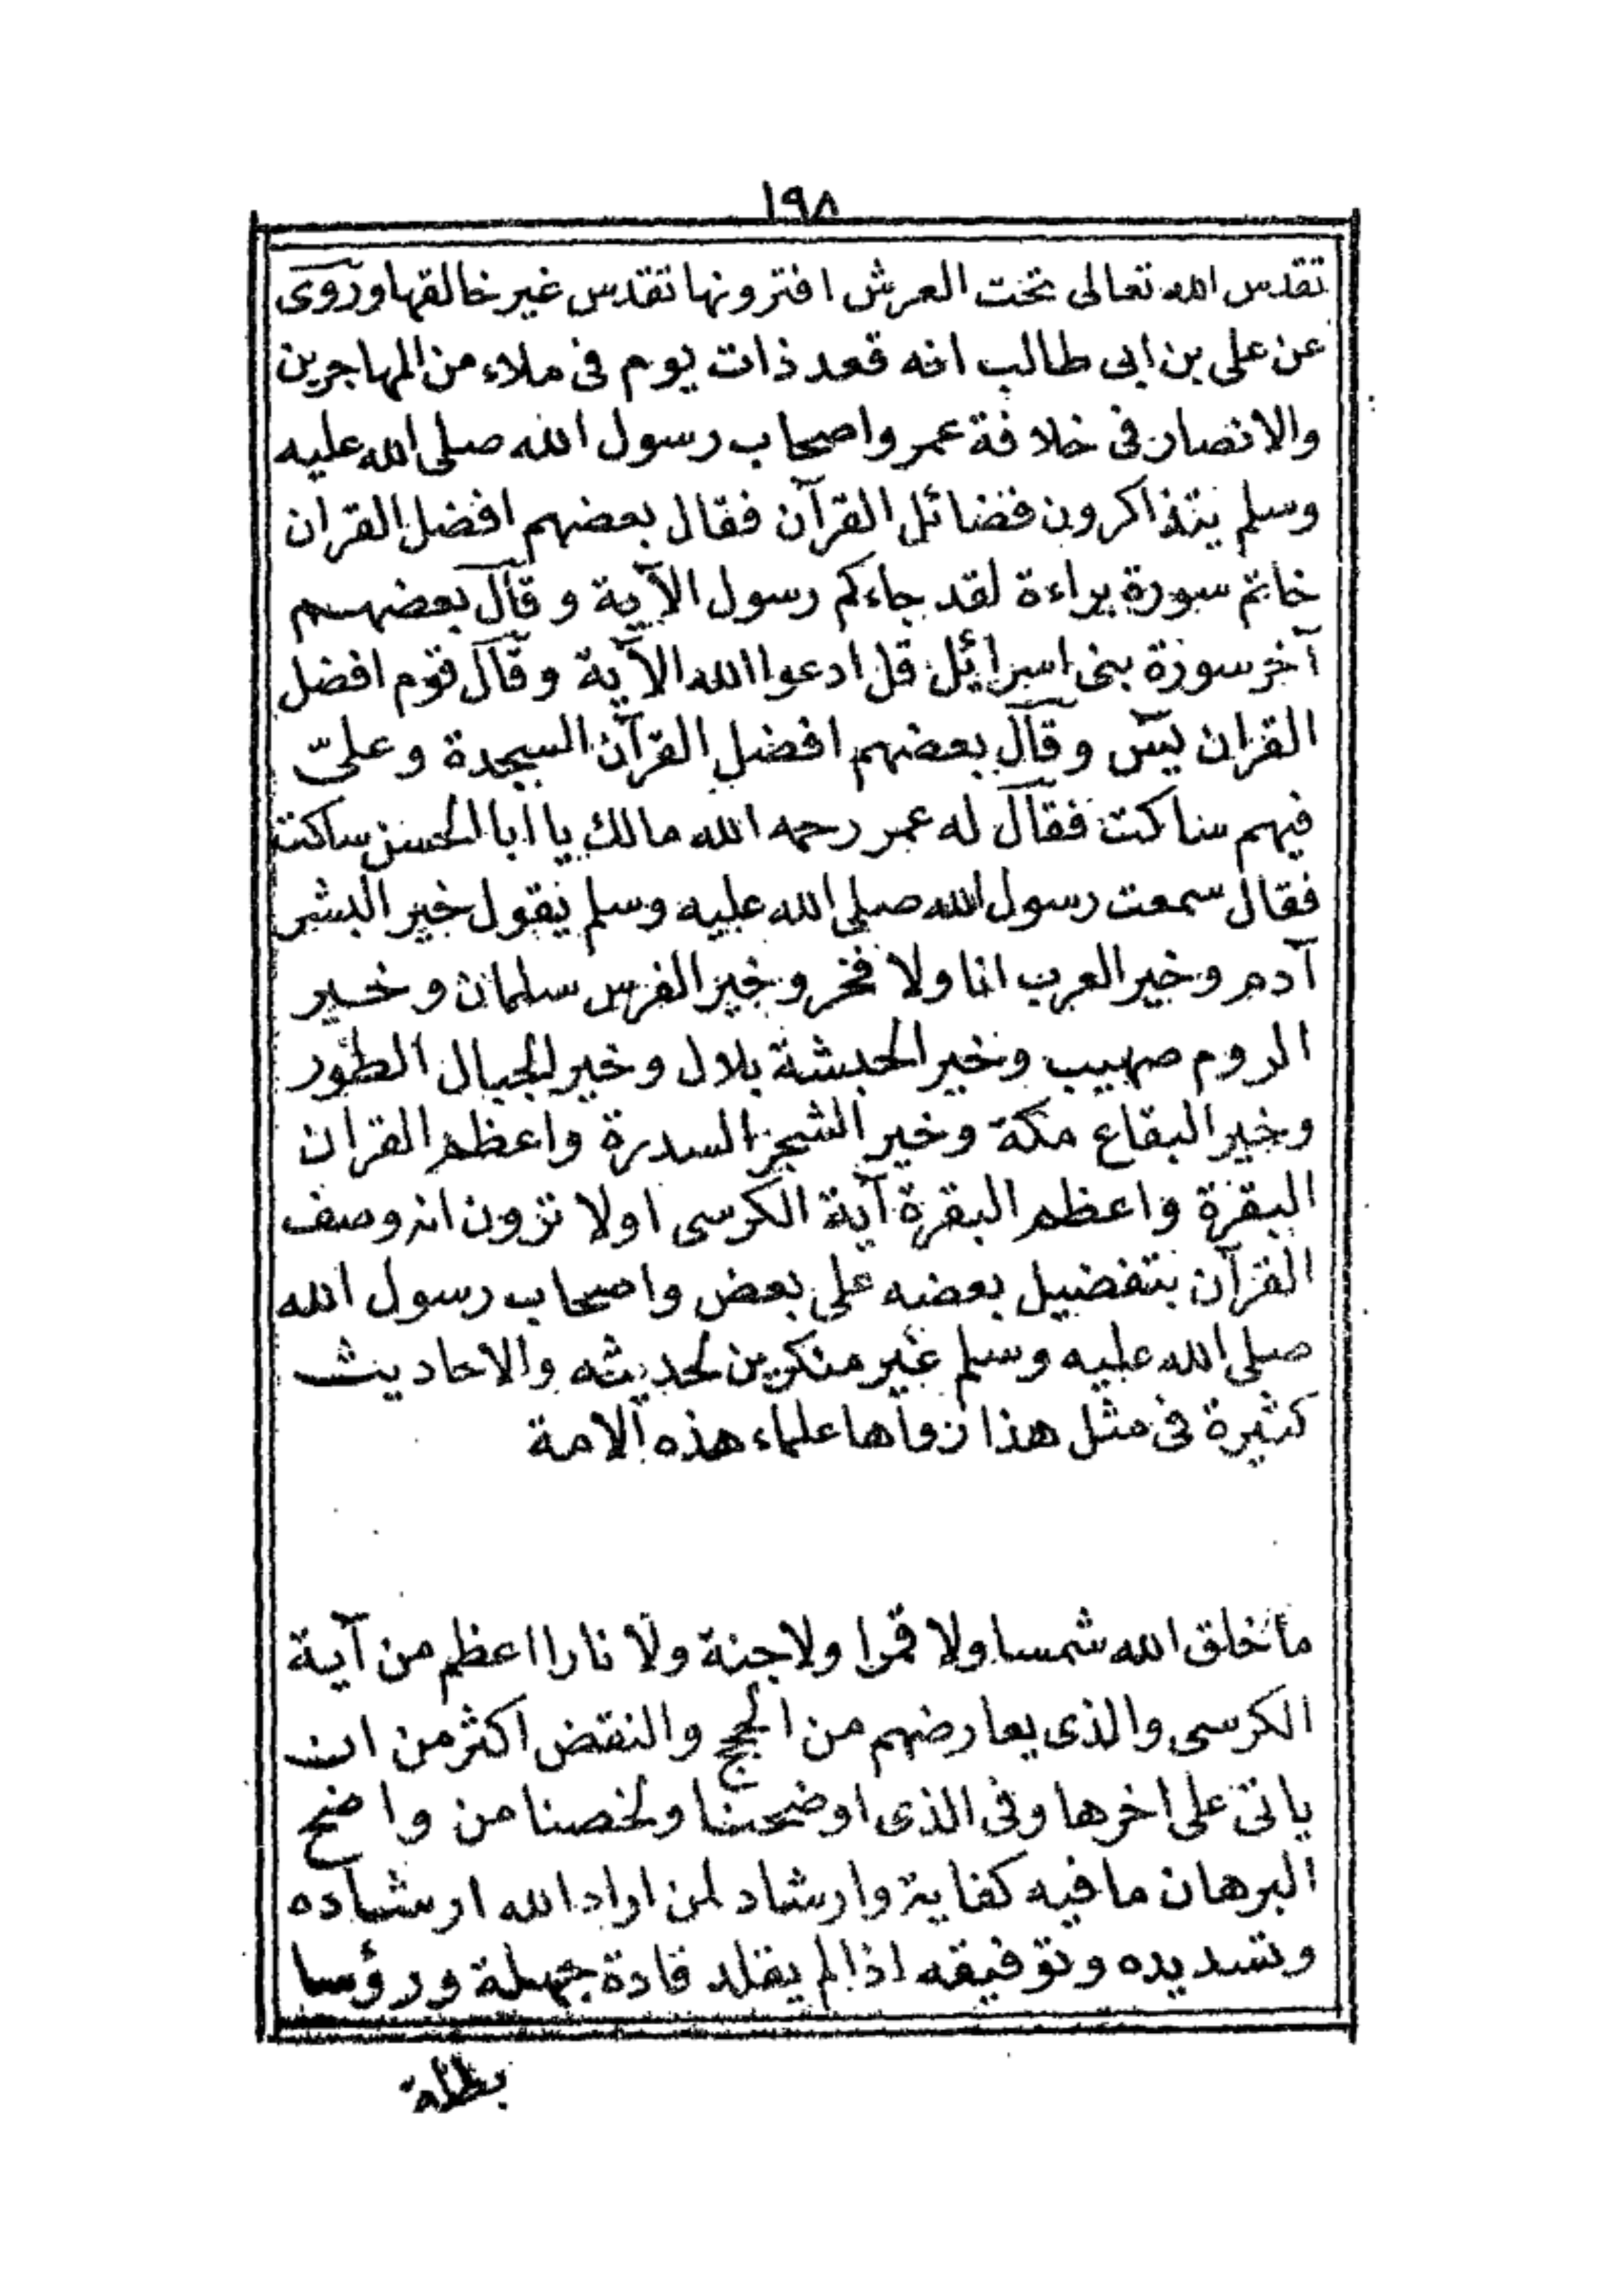 ١٩٨
تقدس الله تعالى تحت العرش افترونها تقدس غير خالقها وروى
عن علي بن ابى طالب انه قعد ذات يوم فى ملاء من المهاجرين
والانصار فى خلافة عمر واصحاب رسول الله صلى الله عليه
وسلم يتذاكرون فضائل القرآن فقال بعضهم افضل القران
خاتم سورة براءة لقد جاءكم رسول الآية وقال بعضهم
آخر سورة بنى اسرائيل قل ادعوا الله الآية وقال قوم افضل
القران يس وقال بعضهم افضل القرآن السجدة وعليّ
فيهم ساكت فقال له عمر رحمه الله مالك يا ابا الحسن ساكت
فقال سمعت رسول الله صلى الله عليه وسلم يقول خير البشر
آدم وخير العرب انا ولا فخر وخير الفرس سلمان وخير
الروم صهيب وخير الحبشة بلال وخير الجبال الطور
وخير البقاع مكة وخير الشجر السدرة واعظم القران
البقرة واعظم البقرة آية الكرسى اولا ترون انه وصف
القرآن بتفضيل بعضه على بعض واصحاب رسول الله
صلى الله عليه وسلم غير منكرين لحديثه والاحاديث
كثيرة فى مثل هذا رواها علماء هذه الامة
ما خلق الله شمسا ولا قمرا ولا جنة ولا نارا اعظم من آية
الكرسى والذى يعارضهم من الحجج والنقض اكثر من ان
ياتى على اخرها وفى الذى اوضحنا ولخصنا من واضح
البرهان ما فيه كفاية وارشاد لمن اراد الله ارشاده
وتسديده وتوفيقه اذا لم يقلد قادة جهلة ورؤسا